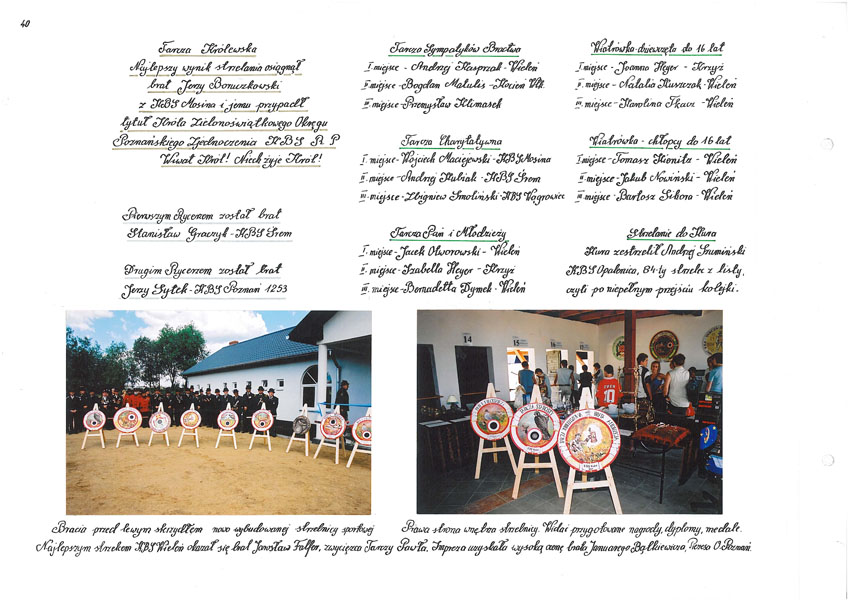 40
Tarcza Królewska
Najlepszy wynik strzelania osiągnął
brat Jerzy Boruczkowski
z KBS Mosina i jemu przypadł
tytuł Króla Zielonoświątkowego Okręgu
Poznańskiego Zjednoczenia KBS RP
Wiwat Król! Niech żyje Król!
Pierwszym Rycerzem został brat
Stanisław Graczyk - KBS Śrem
Drugim Rycerzem został brat
Jerzy Sytek - KBS Poznań 1253
Tarcza Sympatyków Bractwa
I miejsce - Andrzej Kasprzak - Wieleń
II miejsce - Bogdan Matulis - Kocień Wlk.
III miejsce - Przemysław Klimasek
Tarcza Charytatywna
I. miejsce - Wojciech Maciejewski - KBS Mosina
II. miejsce - Andrzej Kubiak - KBS Śrem
III. miejsce - Zbigniew Smoliński - KBS Wągrowiec
Tarcza Pań i Młodzieży
I. miejsce - Jacek Otworowski - Wieleń
II. miejsce - Izabella Heyer - Krzyż
III. miejsce - Bernadetta Dymek - Wieleń
Wiatrówka - dziewczęta do 16 lat
I miejsce - Joanna Heyer - Krzyż
II. miejsce - Natalia Kuszczak - Wieleń
III. miejsce - Karolina Tkacz - Wieleń
Wiatrówka - chłopcy do 16 lat
I miejsce - Tomasz Kionita - Wieleń
II. miejsce - Jakub Nowiński - Wieleń
III miejsce - Bartosz Sikora - Wieleń
Strzelanie do Kura
Kura zestrzelił Andrzej Szumiński
KBS Opalenica, 84-ty strzelec z listy,
czyli po niepełnym przejściu kolejki.
14
15
10
Bracia przed lewym skrzydłem nowo wybudowanej strzelnicy sportowej
Prawa strona wnętrza strzelnicy. Widać przygotowane nagrody, dyplomy, medale.
Najlepszym strzelcem KBS Wieleń okazał się brat Jarosław Falfer, zwycięzca Tarczy Pawła. Impreza uzyskała wysoką ocenę brata Januarego Bątkiewicza, Prezesa O. Poznań.